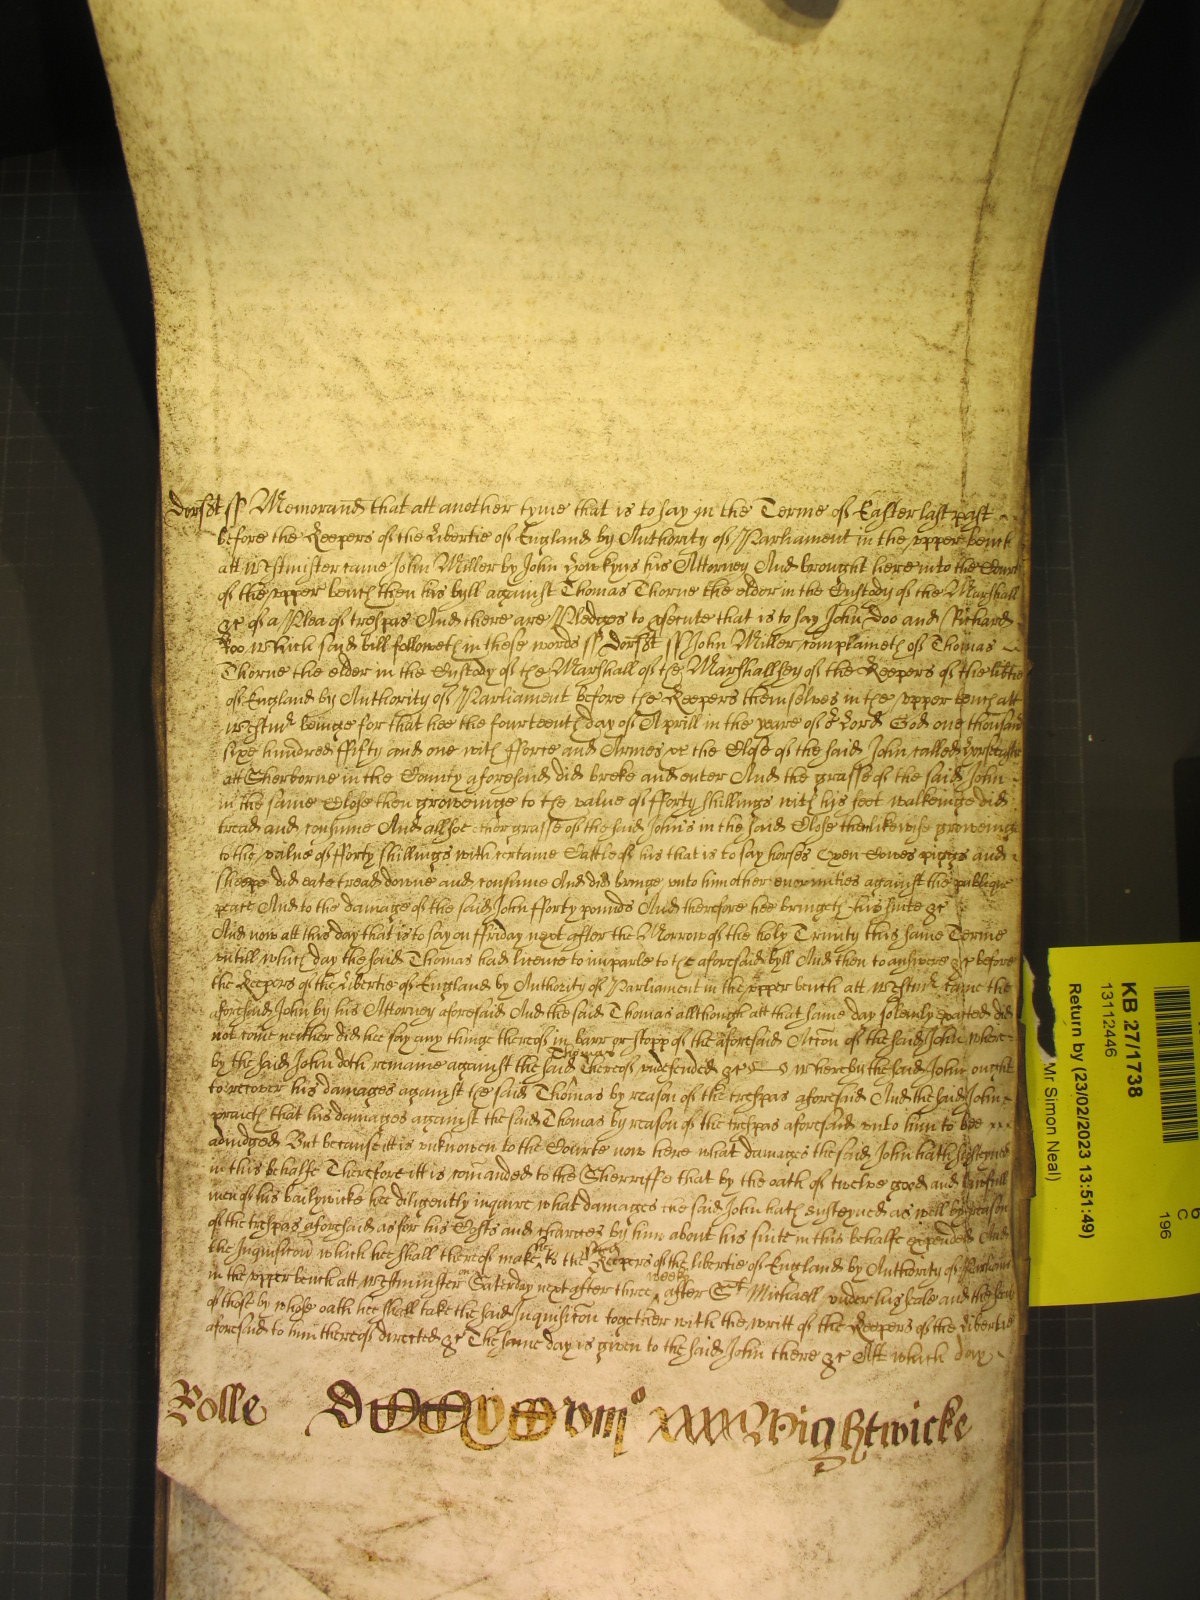 Dorsett ss Memorand that att another tyme that is to say in the Terme of Easter last past
before the Keepers of the Libertie of England by Authority of Parliament in the upper bench
att Westminster came John Miller by John his Attorney And brought here into the Court
of the upper bench then his byll against Thomas Thorne the elder in the Custody of the Marshall
&c of a Plea of trespas And there are Pledges to psecute that is to say John Doo and Richard
Roo which said bill followeth in these words ss Dorsett ss John Miller complaineth of Thomas
Thorne the elder in the Custody of the Marshall of the Marshallsey of the Keepers of the libtie
of England by Authority of Parliament before the Keepers themselves in the upper bench att
Westmr beinge for that hee the fourteenth day of Aprill in the yeare of or Lord God one thousand
sixe hundred fifty and one with fforce and Armes &c the Close of the said John called
att Sherborne in the County aforesaid did breke and enter And the grasse of the said John
in the same Close then groweinge to the value of fforty shillings with his feet walkeinge did
tread and consume And allsoe other grasse of the said John's in the said Close then likewise groweinge
to the value of fforty shillings with certaine Cattle of his that is to say horses Oxen Cowes piggs and
sheepe did eate tread downe and consume And did bringe unto him other enormities against the publique
peace And to the damage of the said John fforty pounds And therefore hee bringeth his suite &c
And now att this day that is to say on ffriday next after the Morrow of the holy Trinity this same Terme
untill which day the said Thomas had licence to imparle to the aforesaid byll And then to answere &c before
the Keepers of the Libertie of England by Authority of Parliament in the upper bench att Westmr came the
aforesaid John by his Attorney aforesaid And the said Thomas allthough att that same day solemly exacted did
not come neither did hee say any thinge thereof in barr or stopp of the aforesaid Accon of the said John where
by the said John doth remaine against the said Thomas thereof undefended &c Whereby the said John ought
to recover his damages against the said Thomas by reason of the trespas aforesaid And the said John
prayeth that his damages against the said Thomas by reason of the trespas aforesaid unto him to bee
adiudged But because itt is unknowen to the Courte now here what damages the said John hath susteyned
in this behalfe Therefore itt is comanded to the Sherriffe that by the oath of twelve good and lawfull
men of his bailywicke hee diligently inquire what damages the said John hath susteyned as well by reason
of the trespas aforesaid as for his Costs and charges by him about his suite in this behalfe expended And
the Inquisicon which hee shall thereof make to the said Keepers of the libertie of England by Authority of Parliamt
in the upper bench att Westminster on Saturday next after three weeks after St Michaell under his seale and the seales
of those by whose oath hee shall take the said Inquisicon together with the writt of the Keepers of the Libertie
aforesaid to him thereof directed &c The same day is given to the said John there &c Att which day
Rolle Wightwicke
KB 27/1738
13112446
Return by (23/02/2023 13:51:49)
Mr Simon Neal)
C
196